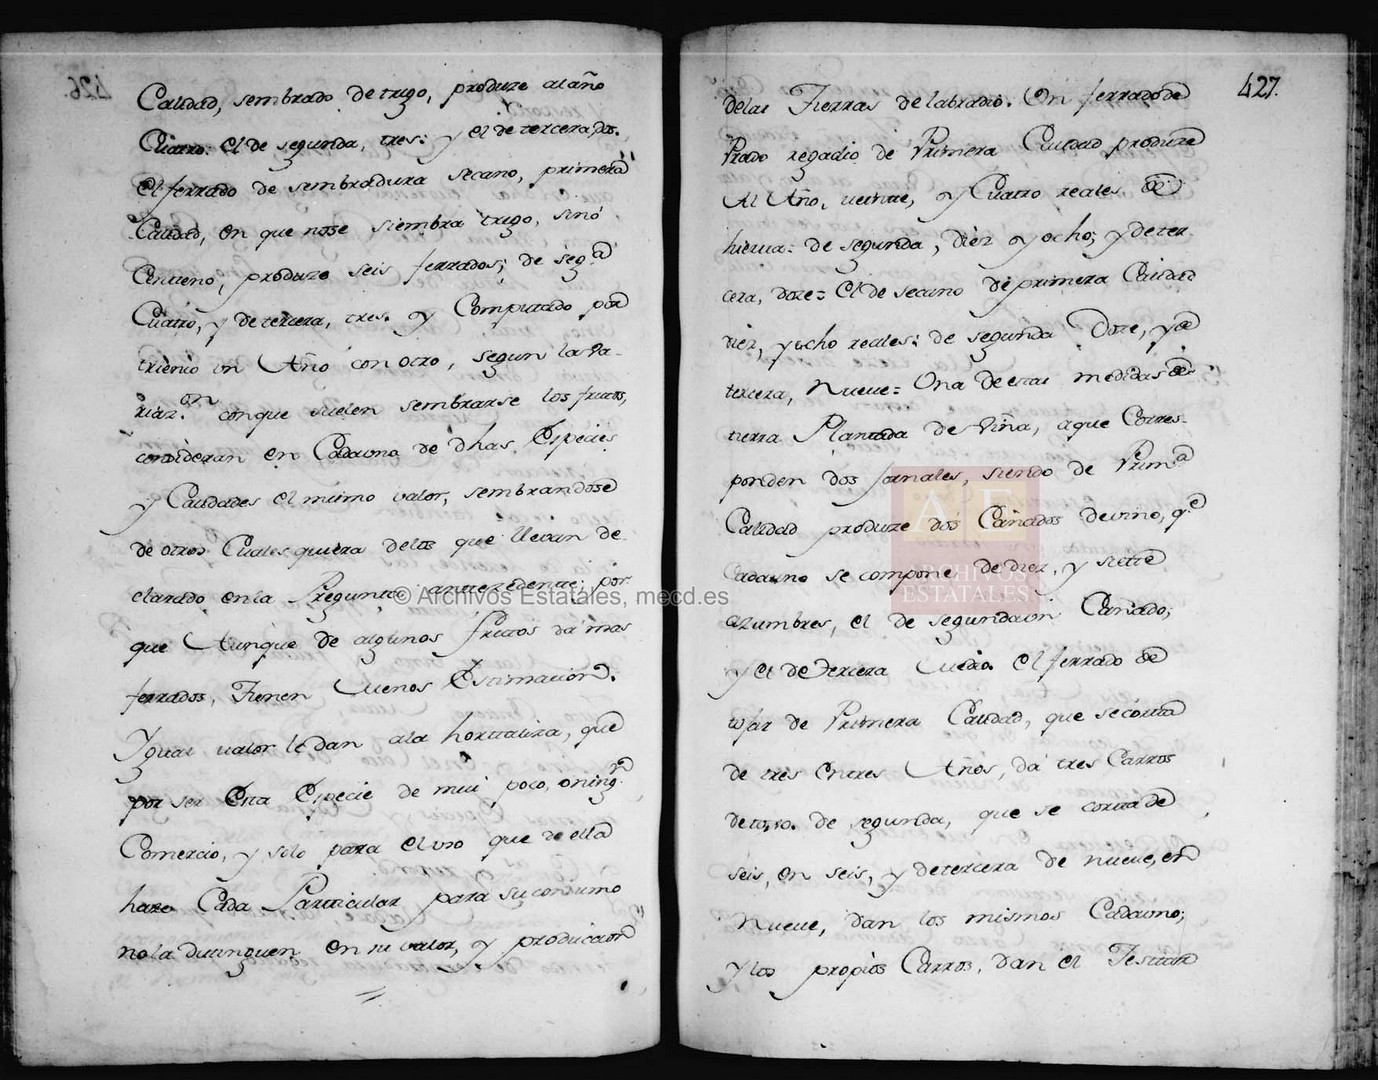 Calidad, sembrado de trigo, produze al año
Cuatro: el de segunda, tres: y el de tercera dos.
el ferrado de sembradura secano, primera
Calidad, en que nose siembra trigo, sinó
Centeno, produze seis ferrados; de seg.a
Cuatro, y de tercera, tres. y Computado por
trienio un Año con otro, segun la va-
riaz.on conque suelen sembrarse los frutos,
consideran en Cadauno de dhas Especies
y Calidades el mismo valor, sembrandose
de otros Cuales quiera delos que llevan de-
clarado enla Pregunta antezedente; por
que Aunque de algunos frutos dá mas
ferrados, Tienen menos Estimacion.
Ygual valor le dan ala hortaliza, que
por ser Esta Especie de mui poco, oning.n
Comercio, y solo para el uso que de ella
haze Cada Particular para su consumo
nola distinguen en su valor, y produccion
427.
delas Tierras de labradio. Un ferrado de
Prado regadio de Primera Calidad produze
Al Año, veinte, y Cuatro reales de
hierva: de segunda, diez y ocho; y de ter-
cera, doze: El de secano de primera Calidad
diez, y ocho reales: de segunda Doze, y de
tercera, Nueve: Una de estas medidas de
tierra Plantada de Viña, aque Corres-
ponden dos jornales, siendo de Prim.a
Calidad produze dos Cañados de vino, q.e
Cadauno se compone de diez, y siete
azumbres, el de segunda un Cañado;
y el de Tercera medio. El ferrado de
tojar de Primera Calidad, que se corta
de tres entres Años, dá tres Carros
de tojo. de segunda, que se corta de
seis, en seis, y de tercera de nueve, en
Nueve, dan los mismos Cadauno;
y los propios Carros, dan el
© Archivos Estatales, mecd.es
AE
ARCHIVOS
ESTATALES